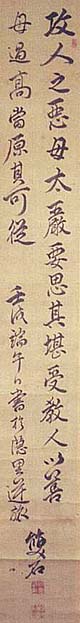 攻人之惡毋太嚴要思其堪受教人以善
毋過高當原其可從
壬戌端午日書於隱里